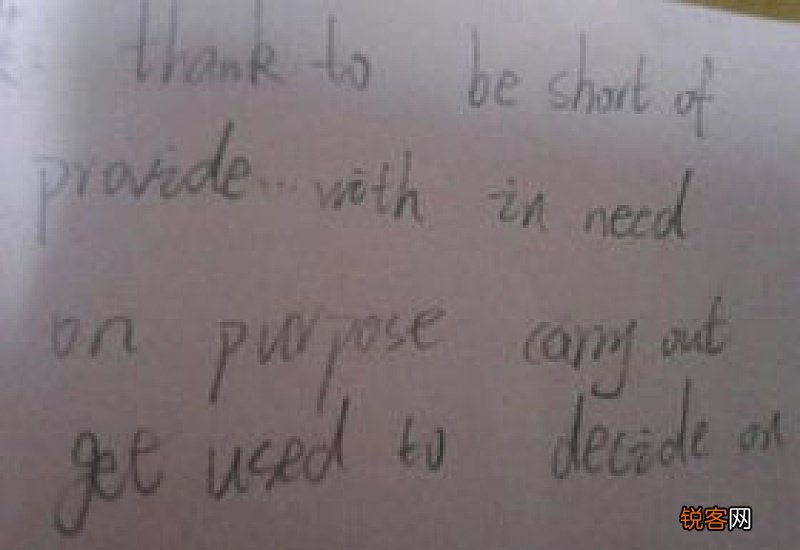 thank to be short of
provide...with in need
on purpose carry out
get used to decide on
锐客网